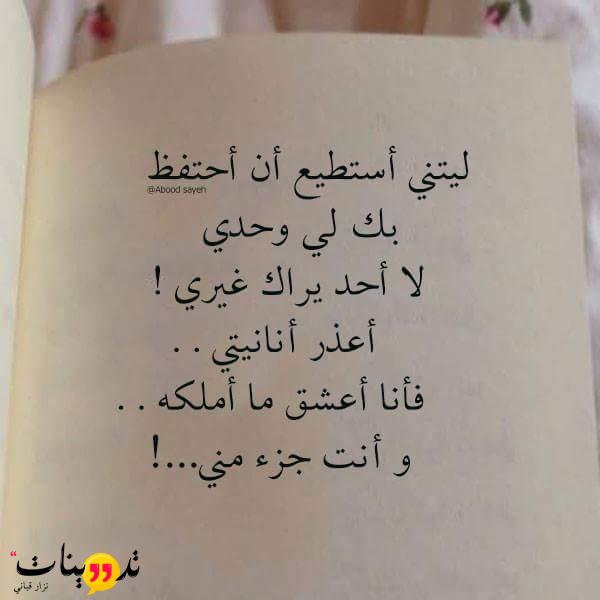 ليتني أستطيع أن أحتفظ
@Abood sayeh
بك لي وحدي
لا أحد يراك غيري !
أعذر أنانيتي . .
فأنا أعشق ما أملكه . .
و أنت جزء مني...!
تدوينات
نزار قباني